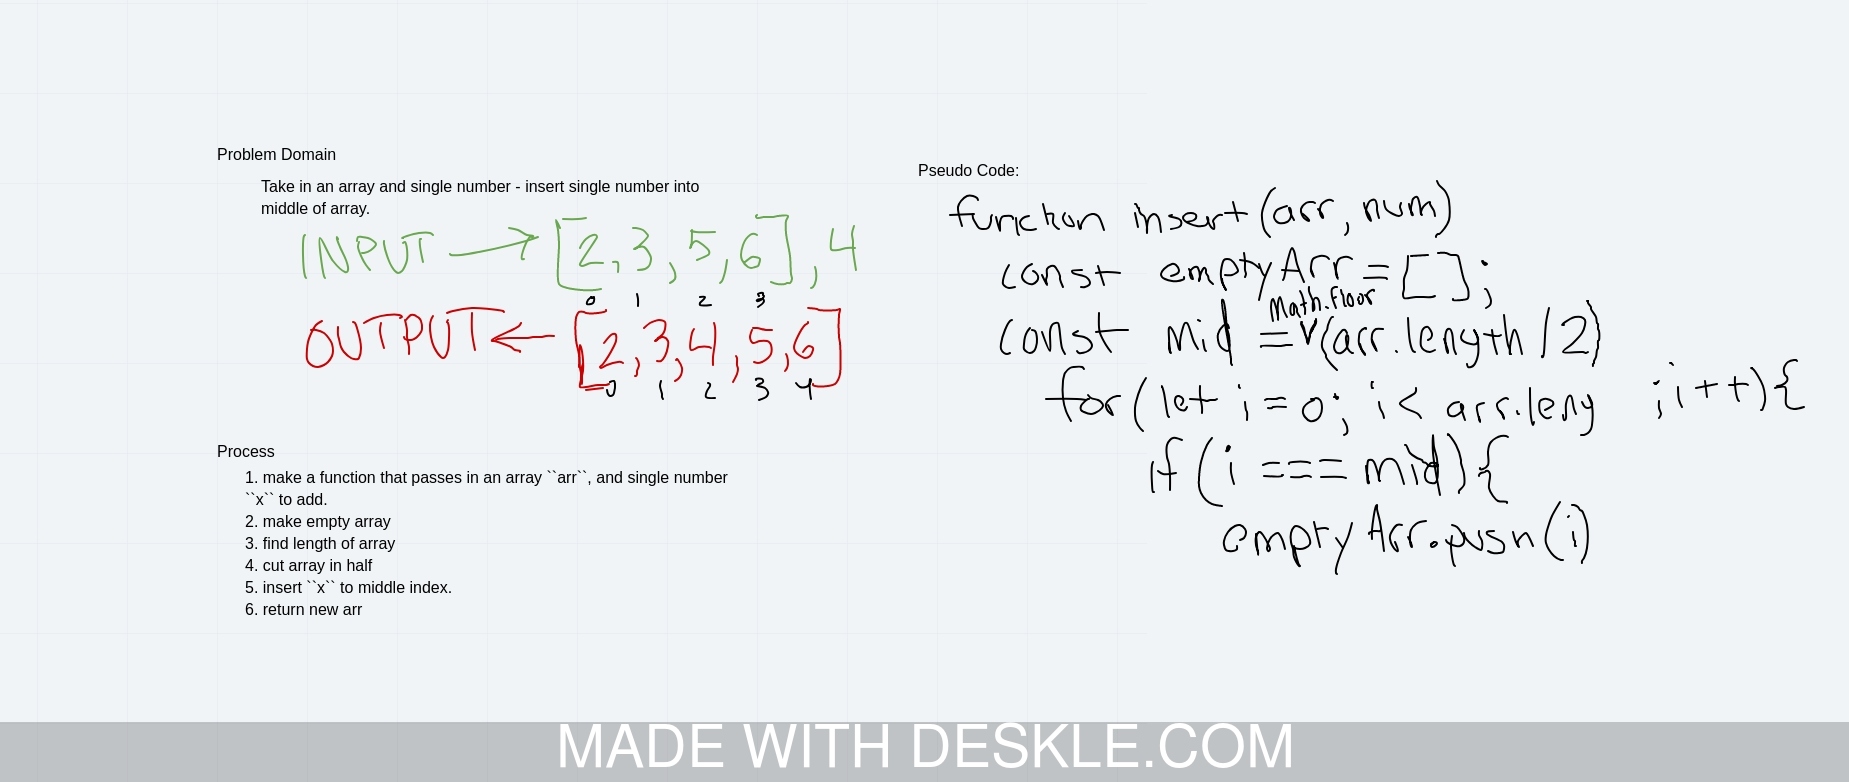 Problem Domain
Take in an array and single number - insert single number into
middle of array.
INPUT → [2,3,5,6],4
0 1 2 3
OUTPUT ← [2,3,4,5,6]
0 1 2 3 4
Process
1. make a function that passes in an array ``arr``, and single number
``x`` to add.
2. make empty array
3. find length of array
4. cut array in half
5. insert ``x`` to middle index.
6. return new arr
Pseudo Code:
function insert(arr, num)
const emptyArr = [];
Math.floor
const mid = (arr.length/2)
for(let i=0; i< arr.leng ;i++){
if(i===mid){
emptyArr.push(i)
MADE WITH DESKLE.COM